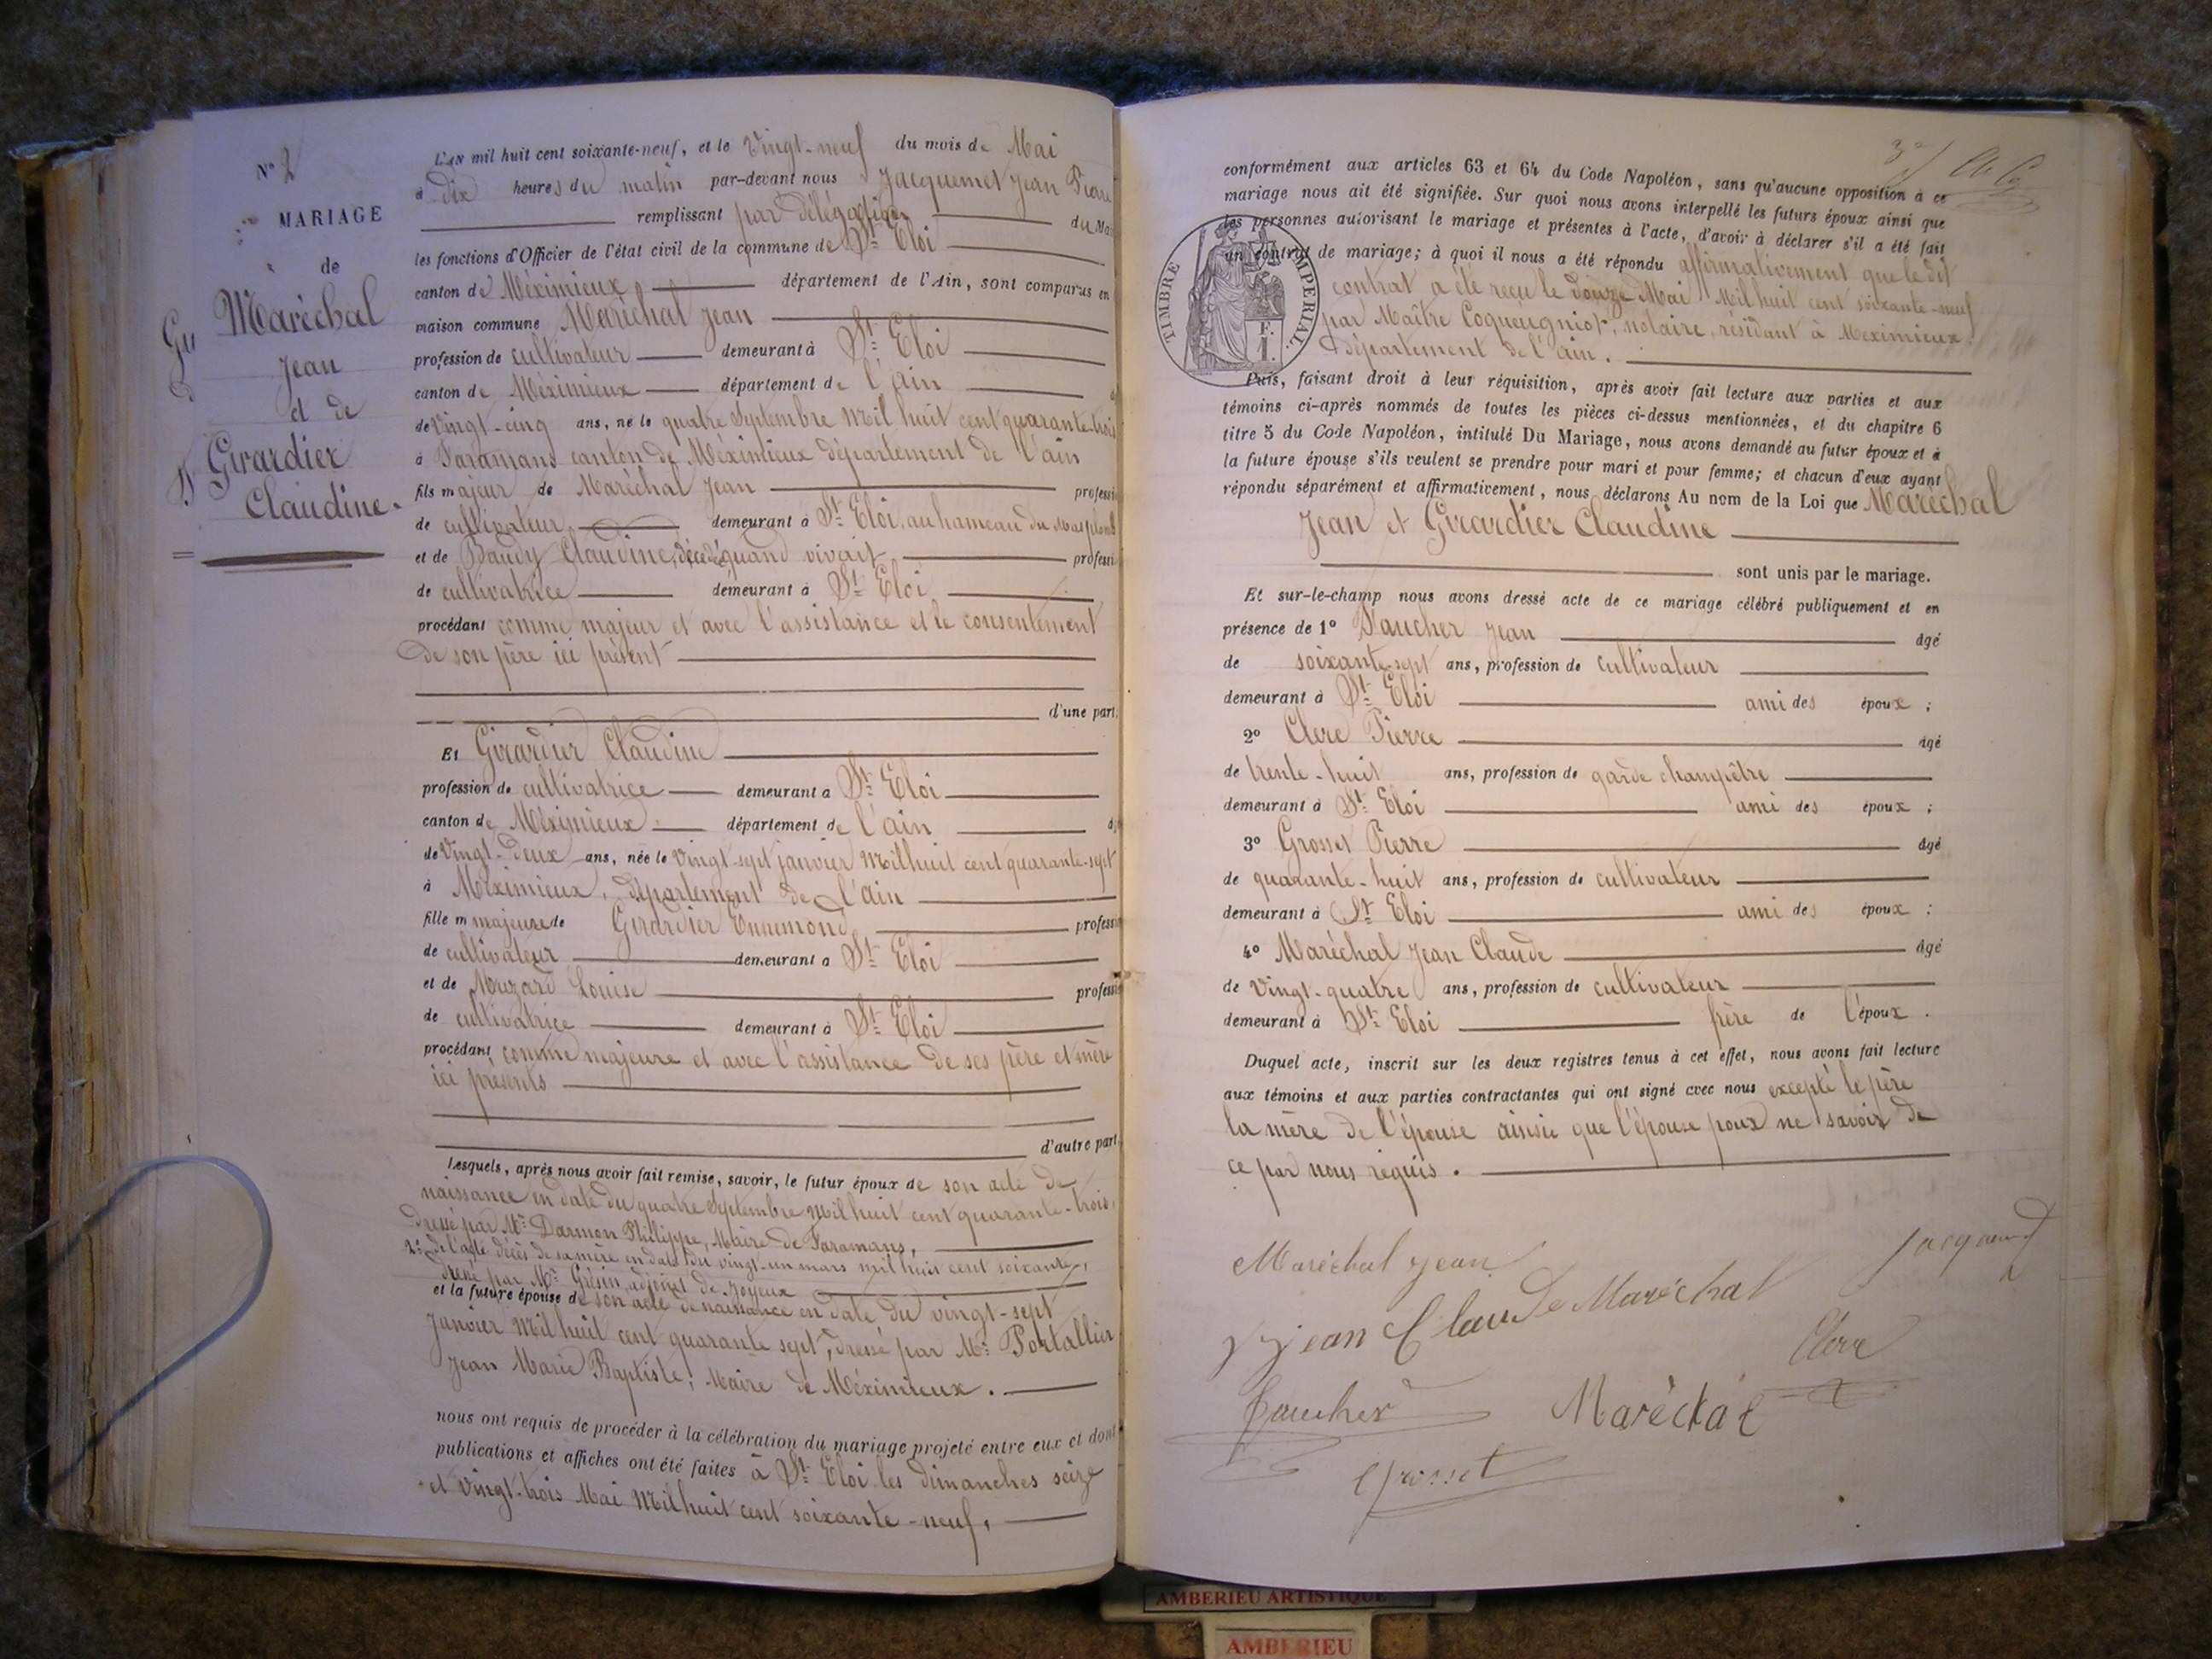 N° 2
MARIAGE
de
Maréchal
Jean
et de
Girardier
Claudine.
L'AN mil huit cent soixante-neuf, et le Vingt-neuf du mois de Mai
à dix heures du matin par-devant nous Jacquemet Jean Pierre
remplissant par délégation du Mai
les fonctions d'Officier de l'état civil de la commune de St Eloi
canton de Méximieux département de l'Ain, sont comparus en
maison commune Maréchal Jean
profession de cultivateur demeurant à St Eloi
canton de Méximieux département de l'ain
de Vingt-cinq ans, né le quatre Septembre Mil huit cent quarante-trois
à Faramans canton de Méximieux département de l'ain
fils majeur de Maréchal Jean professi
de cultivateur demeurant à St Eloi, au hameau du
et de Baudy Claudine, décédé, quand vivait professi
de cultivatrice demeurant à St Eloi
procédant comme majeur et avec l'assistance et le consentement
de son père ici présent
d'une part.
Et Girardier Claudine
profession de cultivatrice demeurant à St Eloi
canton de Méximieux département de l'ain
de Vingt-deux ans, née le Vingt-sept janvier Mil huit cent quarante-sept
à Méximieux, département de l'ain
fille m majeure de Girardier Ennemond professi
de cultivateur demeurant à St Eloi
et de Mouzard Louise professi
de cultivatrice demeurant à St Eloi
procédant comme majeure et avec l'assistance de ses père et mère
ici présents
d'autre part.
Lesquels, après nous avoir fait remise, savoir, le futur époux de son acte de
naissance en date du quatre Septembre Mil huit cent quarante-trois,
dressé par Mr Darmon Philippe, Maire de Faramans,
2° de l'acte décès de sa mère en date du vingt-un mars mil huit cent soixante,
dressé par Mr Grésin adjoint de Joyeux
et la future épouse de son acte de naissance en date du vingt-sept
Janvier Mil huit cent quarante sept, dressé par Mr Portallier
Jean Marie Baptiste, Maire de Méximieux.
nous ont requis de procéder à la célébration du mariage projeté entre eux et dont
publications et affiches ont été faites à St Eloi les dimanches seize
et vingt-trois Mai Mil huit cent soixante-neuf,
conformément aux articles 63 et 64 du Code Napoléon, sans qu'aucune opposition à ce
mariage nous ait été signifiée. Sur quoi nous avons interpellé les futurs époux ainsi que
les personnes autorisant le mariage et présentes à l'acte, d'avoir à déclarer s'il a été fait
un contrat de mariage; à quoi il nous a été répondu affirmativement que le dit
contrat a été reçu le douze Mai Mil huit cent soixante-neuf
par Maître Coqueugniot, notaire, résidant à Meximieux
département de l'ain.
TIMBRE IMPERIAL.
F.
1.
Puis, faisant droit à leur réquisition, après avoir fait lecture aux parties et aux
témoins ci-après nommés de toutes les pièces ci-dessus mentionnées, et du chapitre 6
titre 5 du Code Napoléon, intitulé Du Mariage, nous avons demandé au futur époux et à
la future épouse s'ils veulent se prendre pour mari et pour femme; et chacun d'eux ayant
répondu séparément et affirmativement, nous déclarons Au nom de la Loi que Maréchal
Jean et Girardier Claudine
sont unis par le mariage.
Et sur-le-champ nous avons dressé acte de ce mariage célébré publiquement et en
présence de 1° Faucher Jean âgé
de soixante-sept ans, profession de cultivateur
demeurant à St Eloi ami des époux ;
2° Clerc Pierre âgé
de trente-huit ans, profession de garde champêtre
demeurant à St Eloi ami des époux ;
3° Grosset Pierre âgé
de quarante-huit ans, profession de cultivateur
demeurant à St Eloi ami des époux ;
4° Maréchal Jean Claude âgé
de Vingt-quatre ans, profession de cultivateur
demeurant à St Eloi frère de l'époux.
Duquel acte, inscrit sur les deux registres tenus à cet effet, nous avons fait lecture
aux témoins et aux parties contractantes qui ont signé avec nous excepté le père
la mère de l'épouse ainsie que l'épouse poux ne savoir de
ce par nous requis.
Maréchal Jean
Jacquemet
Jean Claude Maréchal
Clerc
Faucher
Maréchal
Grosset
AMBERIEU ARTISTIQUE
AMBERIEU